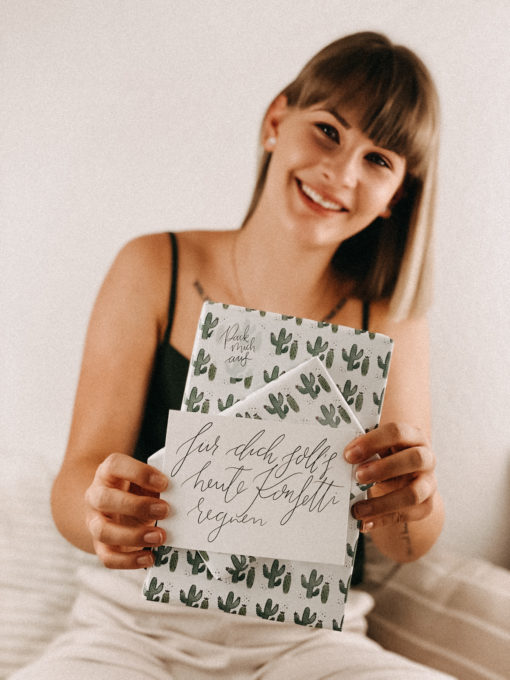 Pack
mich
auf
Für dich soll's
heute Konfetti
regnen